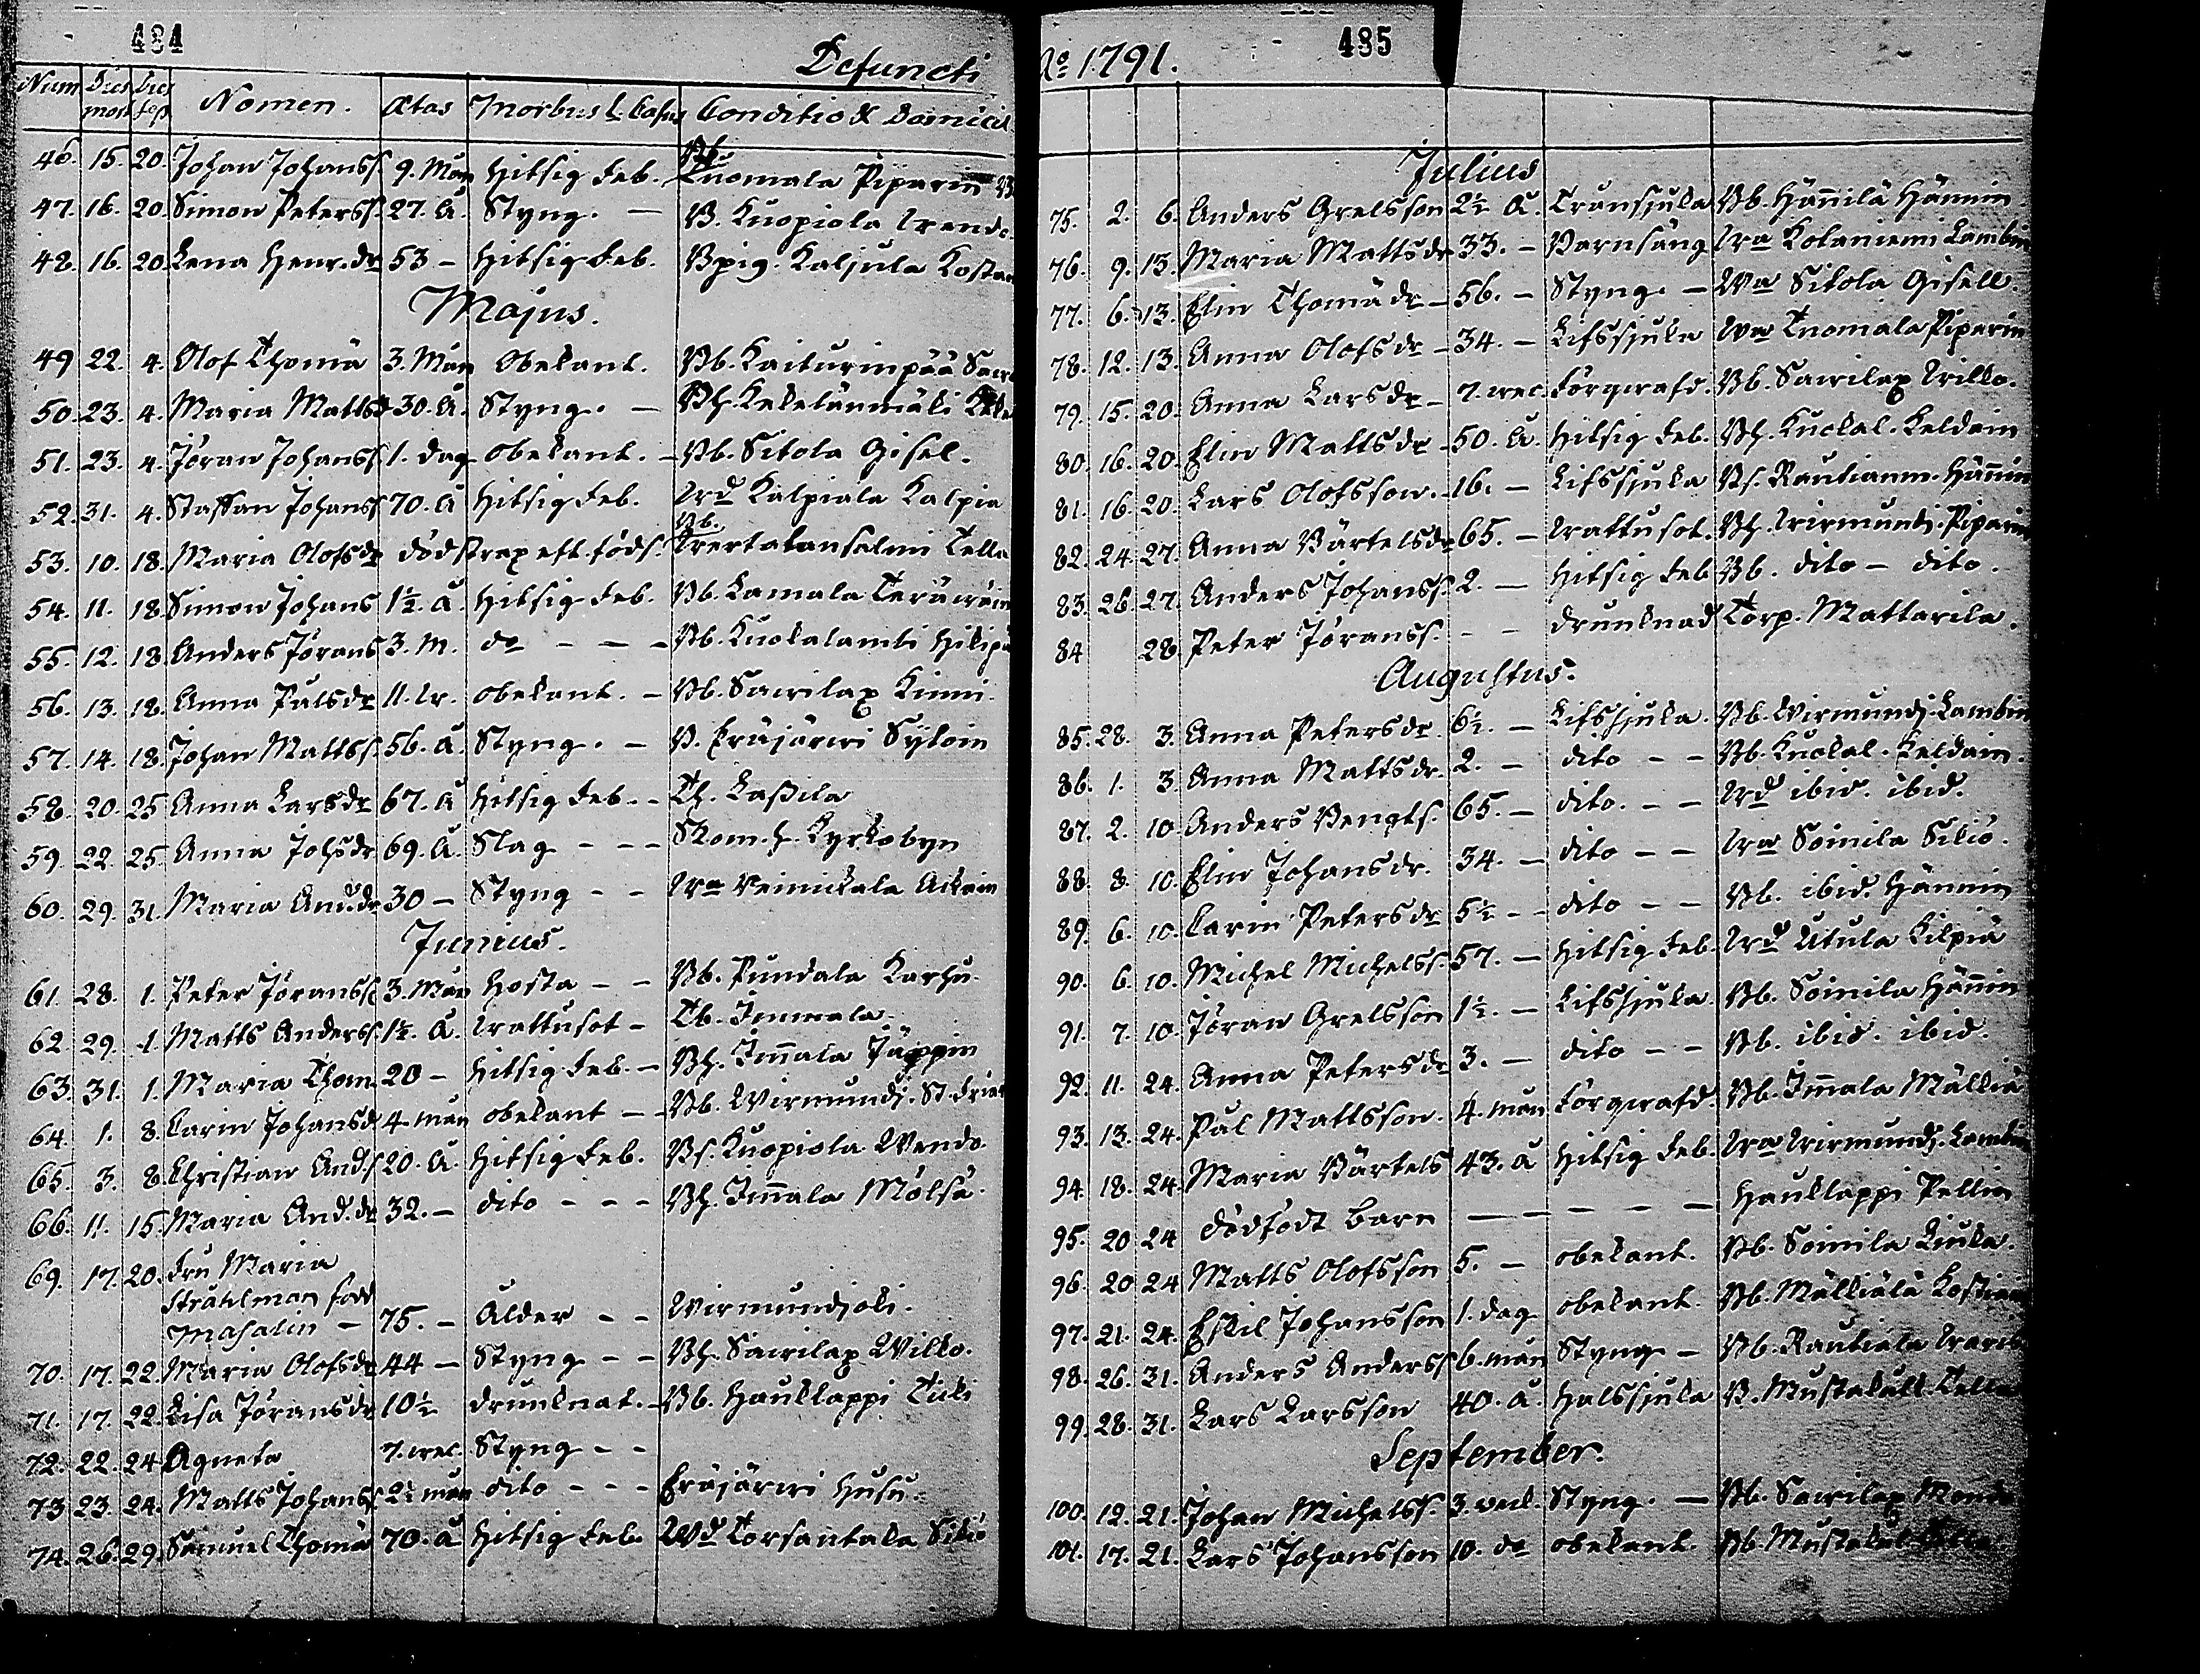 484
Defuncti
Num Dies mort Dies sep Nomen. Ætas Morbus l. Casus Conditio & Domicil
46. 15. 20. Johan Johanss. 9. Mån Hitsig feb. Bb Tuomala Piparin
47. 16. 20. Simon Peterss. 27. å. Styng. — B. Kuopiola
48. 16. 20. Lena Henr.dr 53 — Hitsig feb. Bpig. Kaljula
Majus.
49 22. 4. Olof Thomæ 3. Mån Obekant. Bb. Kaiturinpää
50. 23. 4. Maria Matts 30. å. Styng. — Bh. Kekelänmäki
51. 23. 4. Jöran Johanss 1. dag obekant. — Bb. Sitola Gisel.
52. 31. 4. Staffan Johanss 70. å Hitsig feb. Kalpiala Kalpia
53. 10. 18. Maria Olofsdr död strax eft. föds. Bb. Tella
54. 11. 18. Simon Johans 1½. å. Hitsig feb. Bb. Lamala
55. 12. 18. Anders Jörans 3. M. do - - - Bb. Kuokalambi
56. 13. 18. Anna Pålsdr 11. obekant. — Bb. Savilax Kinni.
57. 14. 18. Johan Mattss. 56. å. Styng. — B. Eräjärvi
58. 20. 25 Anna Larsdr 67. å Hitsig feb. - - Th. Laßila
59. 22. 25. Anna Johsdr 69. å. Slag - - - Skom. h. Kyrkobyn
60. 29. 31. Maria And.dr 30 — Styng - -
Junius.
61. 28. 1. Peter Jöranss 3. Mån Hosta - - Bb. Pundala Karhu.
62. 29. 1. Matts Anderss. 1½. å. Vattusot - Tb. Immala.
63. 31. 1. Maria Thom. 20 - Hitsig feb. - Bh. Im̄ala Jäppin
64. 1. 8. Carin Johansd 4. mån obekant - - Bb. Wirmundj.
65. 3. 8. Christian And.s 20. å. Hitsig feb. Bs. Kuopiola
66. 11. 15. Maria And.dr 32. — dito - - - Bh. Im̄ala Mölsä.
69. 17. 20. Fru Maria
Stråhlman född
Masalin — 75. — Ålder - - Wirmundjoki.
70. 17. 22. Maria Olofsdr 44 — Styng - - Bh. Savilax Wilko.
71. 17. 22 Lisa Jöransdr 10½ drunknat. - Bb. Hauklappi Tuki
72. 22. 24 Agneta 7. vec. Styng - -
73 23. 24. Matts Johanss 2½ mån dito - - - Eräjärvi Husu.
74. 26. 29. Samuel Thomæ 70. å Hitsig feb. Torsantala
485
Ao 1791.
Julius
75. 2. 6. Anders Grelsson 2½ å. Tränsjuka Bb. Hännilä Hännin
76. 9. 13. Maria Mattsdr 33. — Barnsäng Kolaniemi
77. 6. 13. Elin Thomædr — 56. — Styng. — Sitola Gisell.
78. 12. 13. Anna Olofsdr — 34. — Lifssjuka Tuomala Piparin
79. 15. 20. Anna Larsdr — 7. vec. förqvafd. Bb. Savilax Wilko.
80. 16. 20. Elin Mattsdr — 50. å. Hitsig feb. Bh. Kuokal. Keldain
81. 16. 20. Lars Olofsson. - 16. — Lifssjuka Bs. Rautianm. Hännin
82. 24. 27. Anna Bärtelsdr 65. — Vattusot. Bh. Wirmundj. Piparin
83. 26. 27. Anders Johanss. 2. — Hitsig feb Bb. dito — dito.
84 28. Peter Jöranss. - - drunknad Torp. Mattarila.
Augustus.
85. 28. 3. Anna Petersdr. 6½. — Lifssjuka. Bb. Wirmundj. Lambin
86. 1. 3. Anna Mattsdr. 2. — dito - - Bb. Kuokal. Keldain.
87. 2. 10. Anders Bengts. 65. — dito. - - ibid. ibid.
88. 8. 10. Elin Johansdr. 34. — dito - - Soinila
89. 6. 10. Carin Petersdr 5½ - - dito - - Bb. ibid. Hännin
90. 6. 10. Michel Michelss. 57. — Hitsig feb. Utula Kilpiä
91. 7. 10. Jöran Grelsson 1½. — Lifssjuka. Bb. Soinila Hännin
92. 11. 24. Anna Petersdr 3. — dito - - Bb. ibid. ibid.
93. 13. 24. Pål Mattsson. 4. mån förqvafd. Bb. Im̄ala Mälkiä
94. 18. 24. Maria Bärtels 43. å Hitsig feb. Wirmundj. Lambin
95. 20 24 dödfödt barn — — — — — Hauklappi Pellin
96. 20 24 Matts Olofsson 5. — obekant. Bb. Soinila
97. 21. 24. Eskil Johansson 1. dag obekant. Bb. Mälkiälä Kostiain
98. 26. 31. Anders Anderss 6. mån Styng — Bb. Rautiala
99. 28. 31. Lars Larsson 40. å. halssjuka B. Tella
September.
100. 12. 21. Johan Michelss. 3. veck. Styng. — Bb. Savilax
101. 17. 21. Lars Johansson 10. do obekant. Bb.